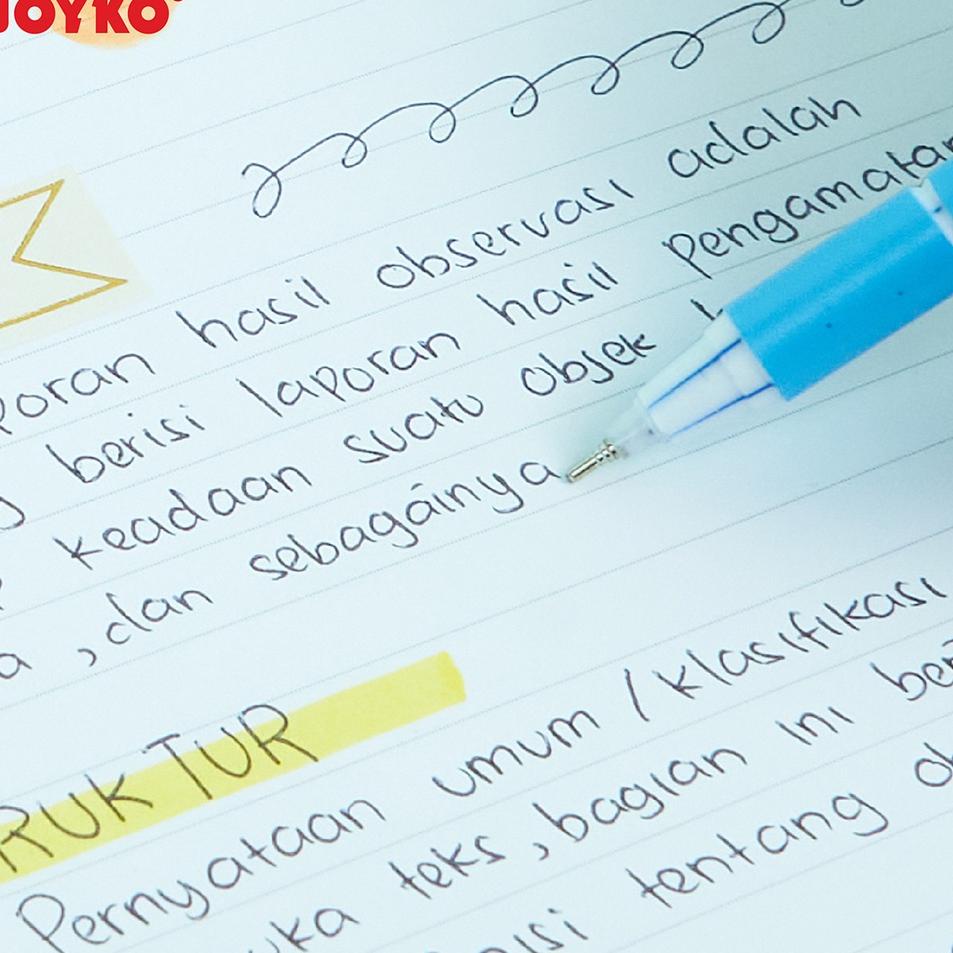 JOYKO
poran hasil observasi adalah
g berisi laporan hasil Pengamatan
keadaan suatu objek
a , dan sebagainya
RUKTUR
Pernyataan umum / klasifikasi
uka teks , bagian ini ber
nisi tentang ob